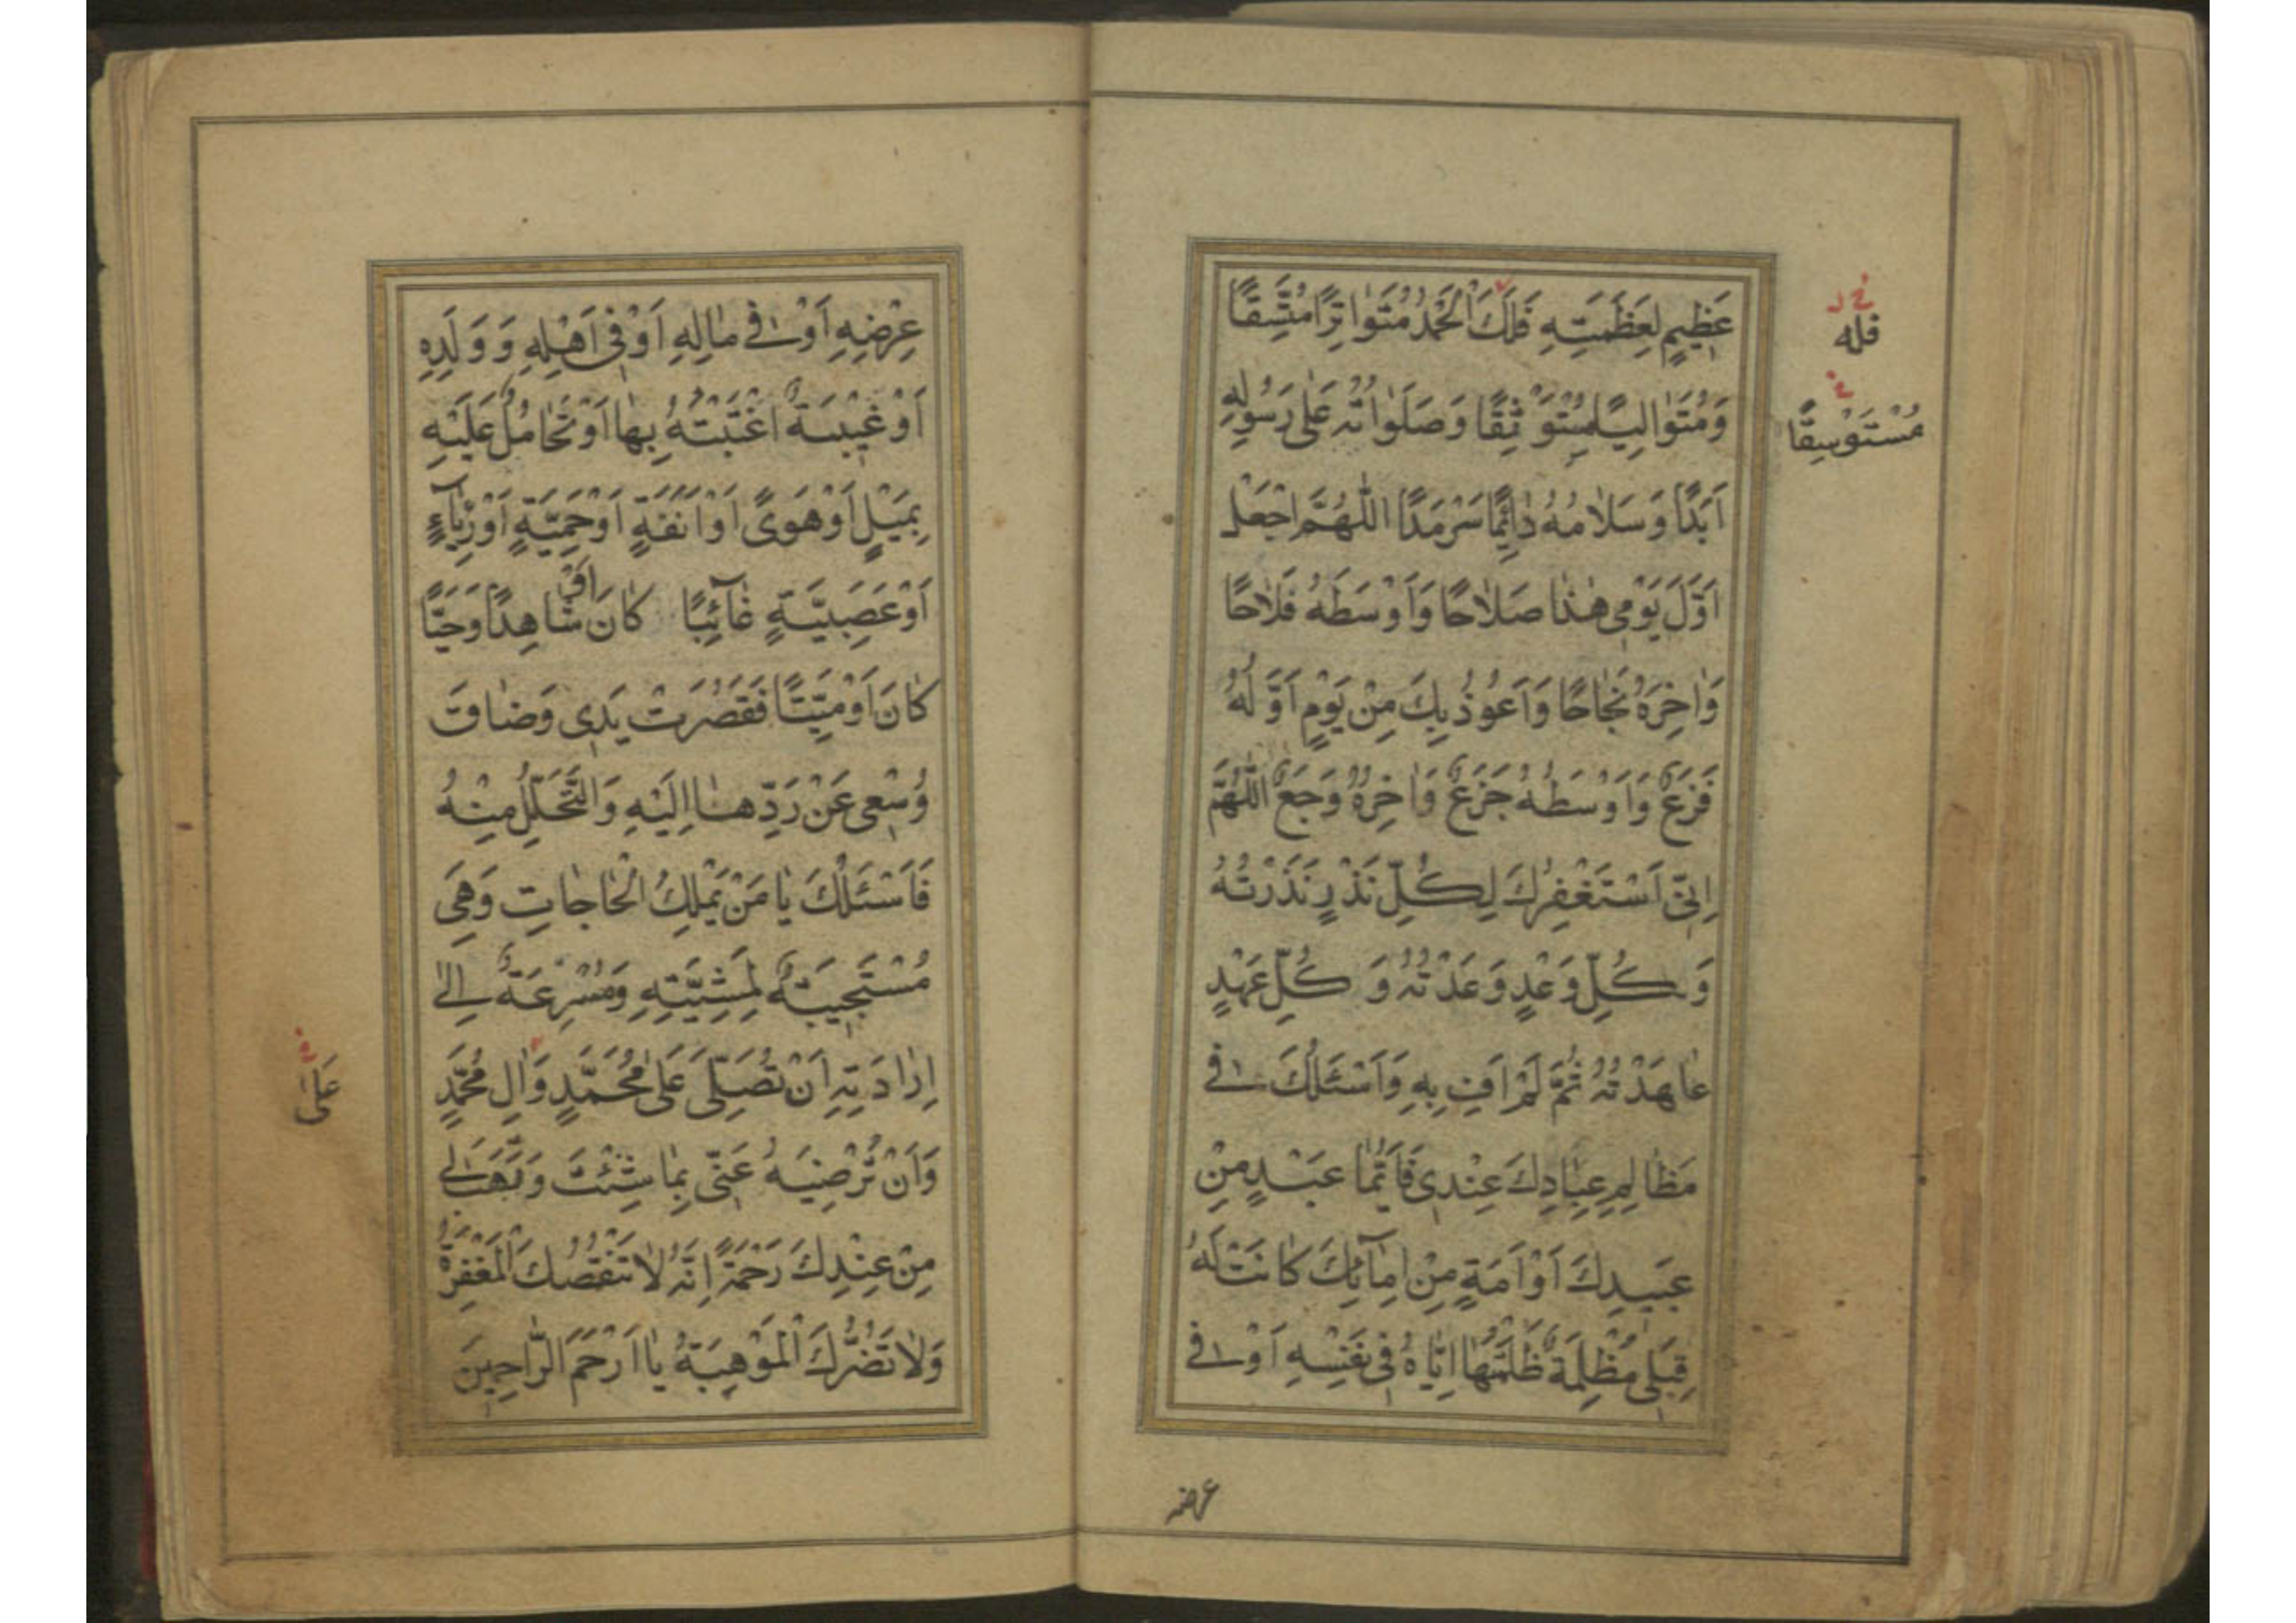 عَظِيمٍ لِعَظَمَتِهِ فَلَكَ الْحَمْدُ مُتَوٰاتِرًا مُتَّسِقًا
وَمُتَوٰالِيًا مُسْتَوْثِقًا وَصَلَوٰاتُهُ عَلىٰ رَسُولِهِ
اَبَدًا وَسَلاٰمُهُ دٰائِمًا سَرْمَدًا اللّٰهُمَّ اجْعَلْ
اَوَّلَ يَوْمِي هٰذٰا صَلاٰحًا وَاَوْسَطَهُ فَلاٰحًا
وَاٰخِرَهُ نَجٰاحًا وَاَعُوذُ بِكَ مِنْ يَوْمٍ اَوَّلُهُ
فَزَعٌ وَاَوْسَطُهُ جَزَعٌ وَاٰخِرُهُ وَجَعٌ اللّٰهُمَّ
اِنّي اَسْتَغْفِرُكَ لِكُلِّ نَذْرٍ نَذَرْتُهُ
وَكُلِّ وَعْدٍ وَعَدْتُهُ وَكُلِّ عَهْدٍ
عٰاهَدْتُهُ ثُمَّ لَمْ اَفِ بِهِ وَاَسْئَلُكَ في
مَظٰالِمِ عِبٰادِكَ عِنْدِي فَاَيُّمٰا عَبْدٍ مِنْ
عَبِيدِكَ اَوْ اَمَةٍ مِنْ اِمٰآئِكَ كٰانَتْ لَهُ
قِبَلِي مَظْلِمَةٌ ظَلَمْتُهٰا اِيّٰاهُ فِي نَفْسِهِ اَوْ في
خ ل
فله
خ
مُسْتَوْسِقًا
عرضه
عِرْضِهِ اَوْ في مٰالِهِ اَوْ فِي اَهْلِهِ وَوَلَدِهِ
اَوْ غِيبَةٌ اغْتَبْتُهُ بِهٰا اَوْ تَحٰامُلٌ عَلَيْهِ
بِمَيْلٍ اَوْ هَوىً اَوْ اَنَفَةٍ اَوْ حَمِيَّةٍ اَوْ رِيٰآءٍ
اَوْ عَصَبِيَّةٍ غٰآئِبًا كٰانَ اَوْ شٰاهِدًا وَحَيًّا
كٰانَ اَوْ مَيِّتًا فَقَصُرَتْ يَدِي وَضٰاقَ
وُسْعِي عَنْ رَدِّهٰا اِلَيْهِ وَالتَّحَلُّلِ مِنْهُ
فَاَسْئَلُكَ يٰا مَنْ يَمْلِكُ الْحٰاجٰاتِ وَهِيَ
مُسْتَجِيبَةٌ لِمَشِيَّتِهِ وَمُسْرِعَةٌ اِلىٰ
اِرٰادَتِهِ اَنْ تُصَلِّيَ عَلىٰ مُحَمَّدٍ وَاٰلِ مُحَمَّدٍ
وَاَنْ تُرْضِيَهُ عَنّي بِمٰا شِئْتَ وَتَهَبَ لي
مِنْ عِنْدِكَ رَحْمَةً اِنَّهُ لاٰ تَنْقُصُكَ الْمَغْفِرَةُ
وَلاٰ تَضُرُّكَ الْمَوْهِبَةُ يٰا اَرْحَمَ الرّٰاحِمِينَ
خ
عَلىٰ